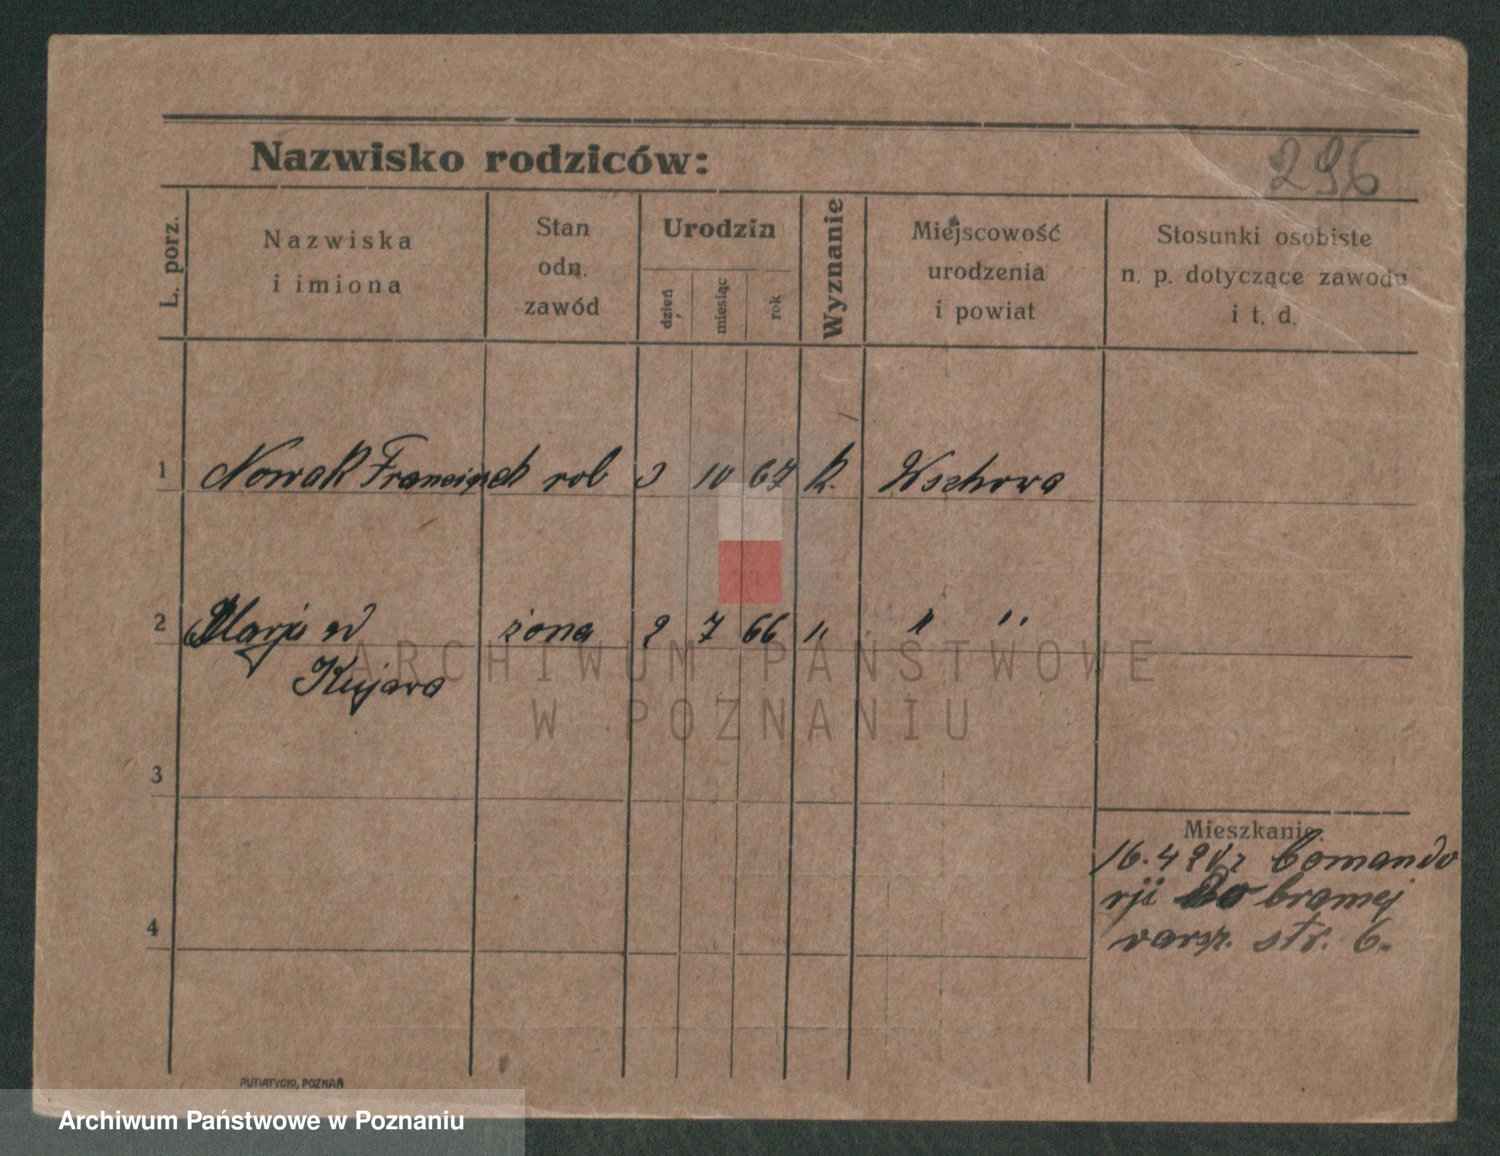 Nazwisko rodziców:
296
L. porz.
Nazwiska
i imiona
Stan
odn.
zawód
Urodzin
dzień
miesiąc
rok
Wyznanie
Miejscowość
urodzenia
i powiat
Stosunki osobiste
n. p. dotyczące zawodu
i t. d.
1 Nowak rol 3 10 67 k. Wschowa
2 żona 2 7 66 " " "
Kujawa
3
Mieszkanie.
16.4 Comando
rji bramej
warsz. str. 6.
4
PUTIATYCKI, POZNAŃ
ARCHIWUM PAŃSTWOWE
W POZNANIU
Archiwum Państwowe w Poznaniu